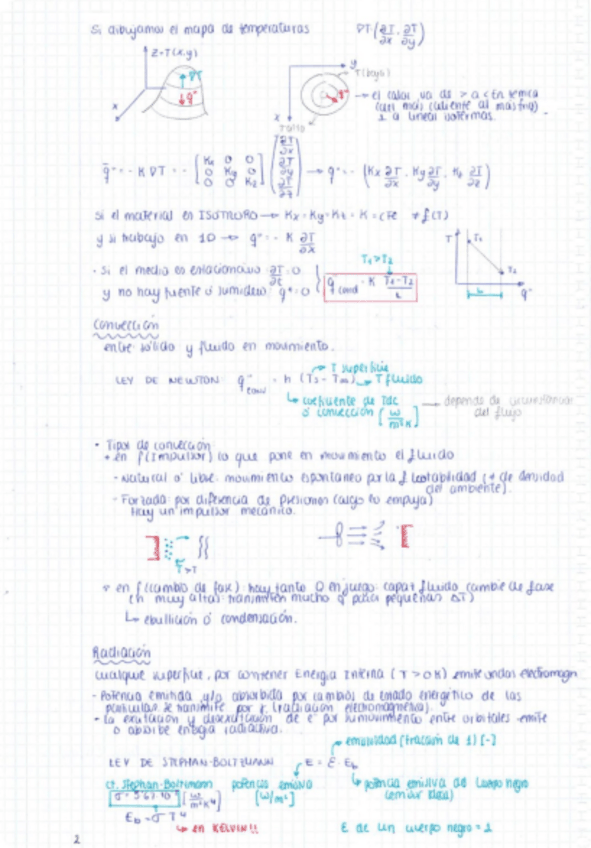 Si dibujamos el mapa de temperaturas ∇T (∂T/∂x, ∂T/∂y)
Z=T(x,y)
∇T
q"
x
y
T(baja)
q"
x
T alto
→ el calor va de > a < En termica
(del más caliente al más frío)
⊥ a lineas isotermas.
q̄" = - K ∇T = - [Kx 0 0 / 0 Ky 0 / 0 0 Kz] (∂T/∂x / ∂T/∂y / ∂T/∂z) → q" = - (Kx ∂T/∂x, Ky ∂T/∂y, Kz ∂T/∂z)
Si el material es ISÓTROPO → Kx = Ky = Kz = K = cte ≠ f(T)
y si trabajo en 1D → q" = - K ∂T/∂x
T₁>T₂
- Si el medio es estacionario ∂T/∂t = 0
y no hay fuente o sumidero q = 0 } q" cond = K (T₁-T₂)/L
T
T₁
T₂
L
q"
Convección
entre sólido y fluido en movimiento.
→ T superficie
LEY DE NEWTON: q" conv = h (Ts - T∞) → T fluido
↳ coeficiente de Tdc
o convección [W/m²K] → depende de circunstancias
del flujo
• Tipos de convección
* en f(Impulsor) lo que pone en movimiento el fluido
- Natural o libre: movimiento espontaneo por la f (≠ de densidad
del ambiente).
- Forzada: por diferencia de presiones (algo lo empuja)
Hay un impulsor mecánico.
T>T
* en f(cambio de fase) hay tanto Q en juego capaz fluido cambie de fase
(h muy altas: transmiten mucho q para pequeñas ΔT)
↳ ebullición o condensación.
Radiación
cualquier superficie, por contener Energía Interna (T > 0 K) emite ondas electromagn
- Potencia emitida y/o absorbida por cambios de estado energético de las
partículas se transmite por (radiación electromagnética).
- La excitación y desexcitación de e⁻ por su movimiento entre orbitales emite
o absorbe energía radiactiva.
→ emisividad (fracción de 1) [-]
LEY DE STEPHAN-BOLTZMANN E = ε · Eb
Ct. Stephan-Boltzmann potencia emisiva ↳ potencia emisiva del cuerpo negro
σ = 5'67·10⁻⁸ [W/m²K⁴] [W/m²] (emisor ideal)
Eb = σ T⁴
↳ en KELVIN!! ε de un cuerpo negro = 1
2